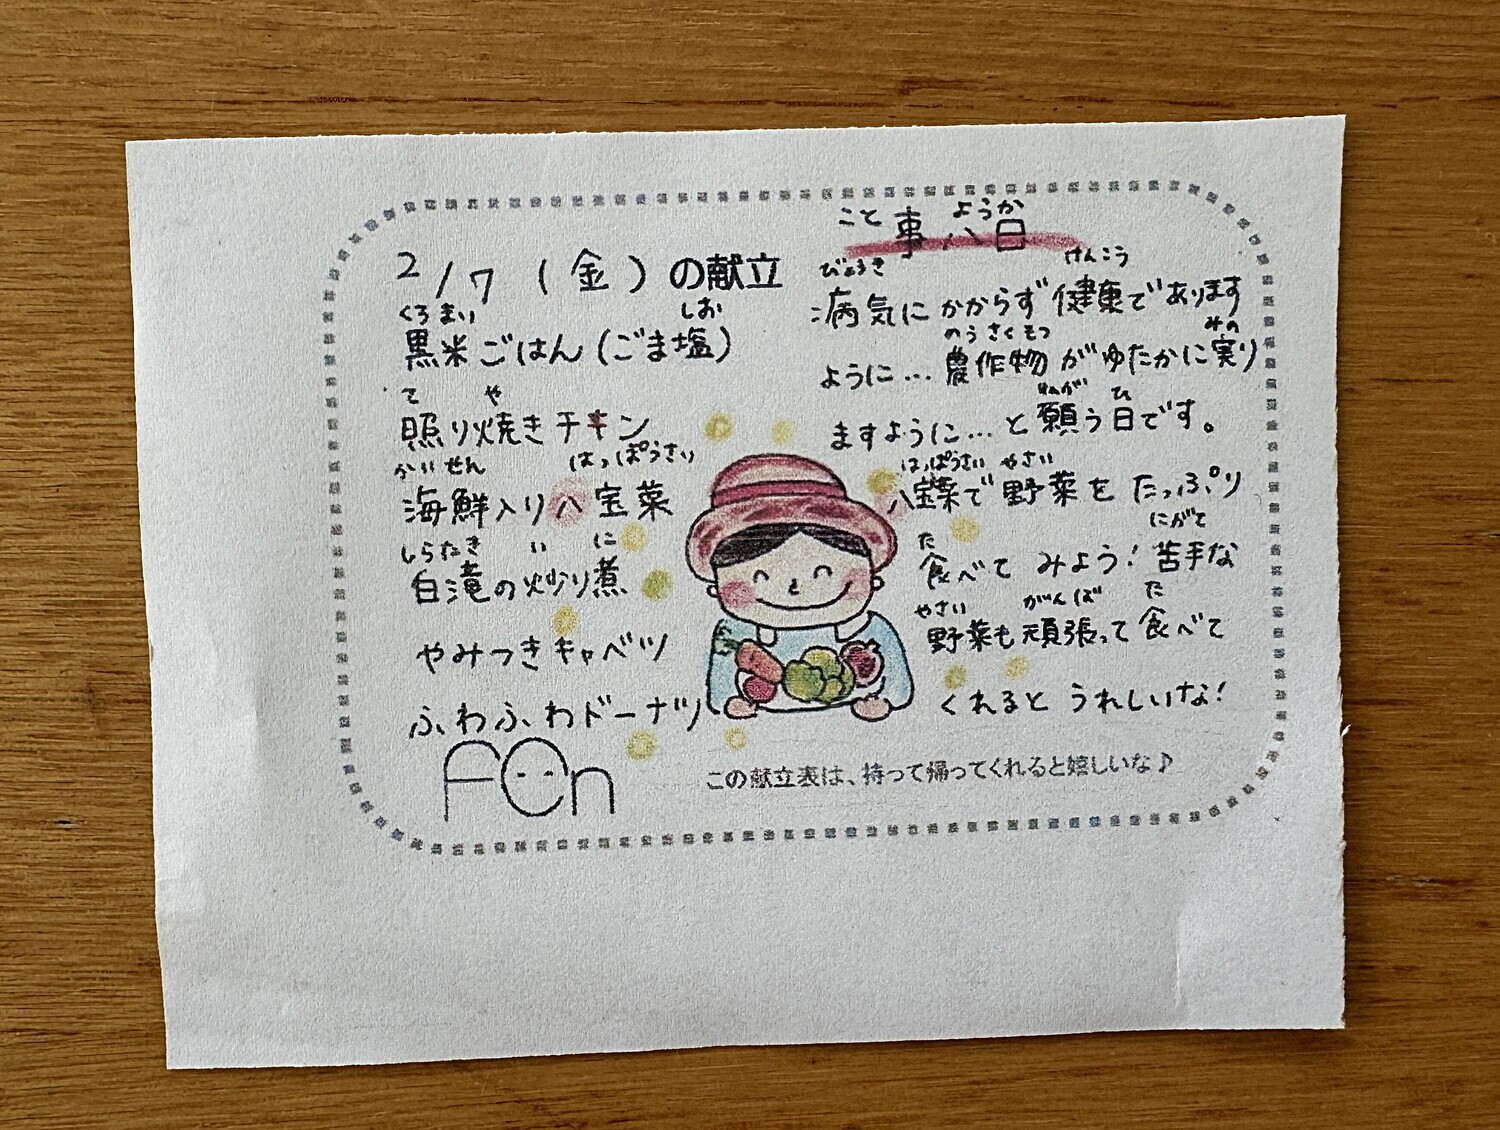 2/7（金）の献立
くろまい しお
黒米ごはん(ごま塩)
て や
照り焼きチキン
かいせん はっぽうさい
海鮮入り八宝菜
しらたき い に
白滝の炒り煮
やみつきキャベツ
ふわふわドーナツ
fOn
こと ようか
事八日
びょうき けんこう
病気にかからず健康であります
のうさくもつ みの
ように…農作物がゆたかに実り
ねが ひ
ますように…と願う日です。
はっぽうさい やさい
八宝菜で野菜をたっぷり
た にがて
食べてみよう!苦手な
やさい がんば た
野菜も頑張って食べて
くれるとうれしいな!
この献立表は、持って帰ってくれると嬉しいな♪